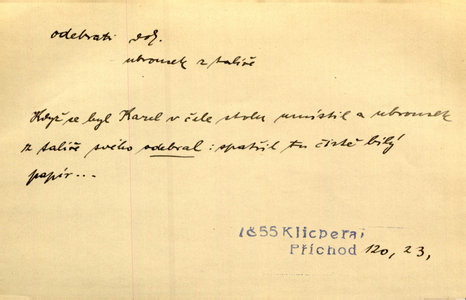 odebrati dok.
ubrousek z talíře
Když se byl Karel v čele stolu umístil a ubrousek
z talíře svého odebral: spatřil tu čistě bílý
papír...
1855 Klicpera;
Příchod 120, 23,